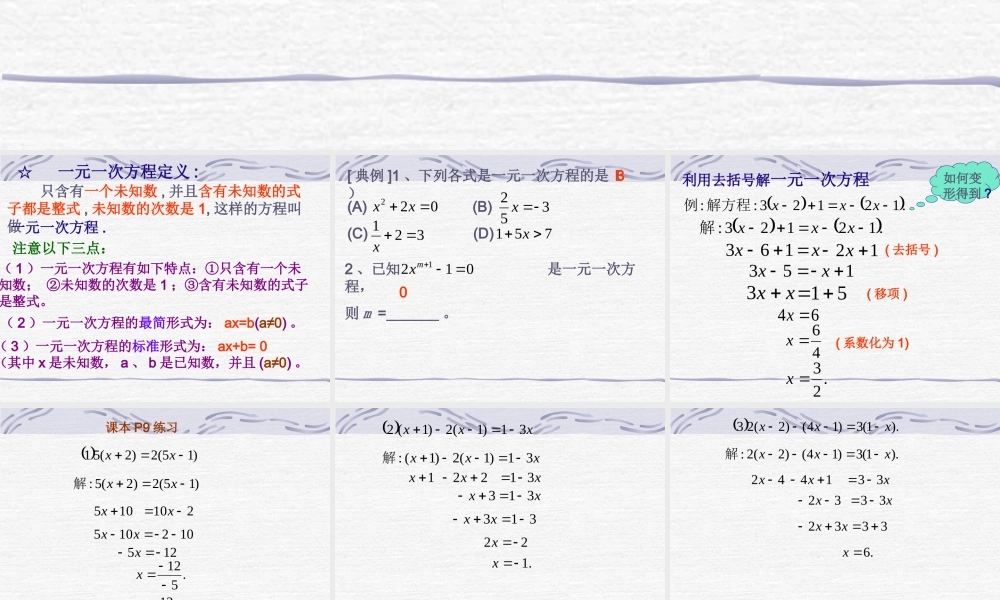 ☆ 一元一次方程定义 :
只含有一个未知数 , 并且含有未知数的式
子都是整式 , 未知数的次数是 1, 这样的方程叫
做一元一次方程 .
注意以下三点:
( 1 ) 一元一次方程有如下特点: ①只含有一个未
知数; ②未知数的次数是 1 ; ③含有未知数的式子
是整式。
( 2 ) 一元一次方程的最简形式为: ax=b(a≠0) 。
( 3 ) 一元一次方程的标准形式为: ax+b= 0
(其中 x 是未知数, a 、 b 是已知数, 并且 (a≠0) 。
[ 典例 ]1 、下列各式是一元一次方程的是 ( B
)
(A) x² 2x 0 (B) 2/5 x 3
(C) 1/x 2 3 (D) 1 5x 7
2 、已知 2x^{m 1} 1 0 是一元一次方
程,
0
则 m =______ 。
利用去括号解一元一次方程
如何变
形得到 ?
例 : 解方程 : 3 x 2 1 x 2x 1 .
解 : 3 x 2 1 x 2x 1
3x 6 1 x 2x 1 ( 去括号 )
3x 5 x 1
3x x 1 5 ( 移项 )
4x 6
x 6/4 ( 系数化为 1)
x 3/2 .
课本 P9 练习
(1) 5(x 2) 2(5x 1)
解 : 5(x 2) 2(5x 1)
5x 10 10x 2
5x 10x 2 10
5x 12
x 12/5 .
(2) (x 1) 2(x 1) 1 3x
解 : (x 1) 2(x 1) 1 3x
x 1 2x 2 1 3x
x 3 1 3x
x 3x 1 3
2x 2
x 1.
(3) 2(x 2) (4x 1) 3(1 x).
解 : 2(x 2) (4x 1) 3(1 x).
2x 4 4x 1 3 3x
2x 3 3 3x
2x 3x 3 3
x 6.